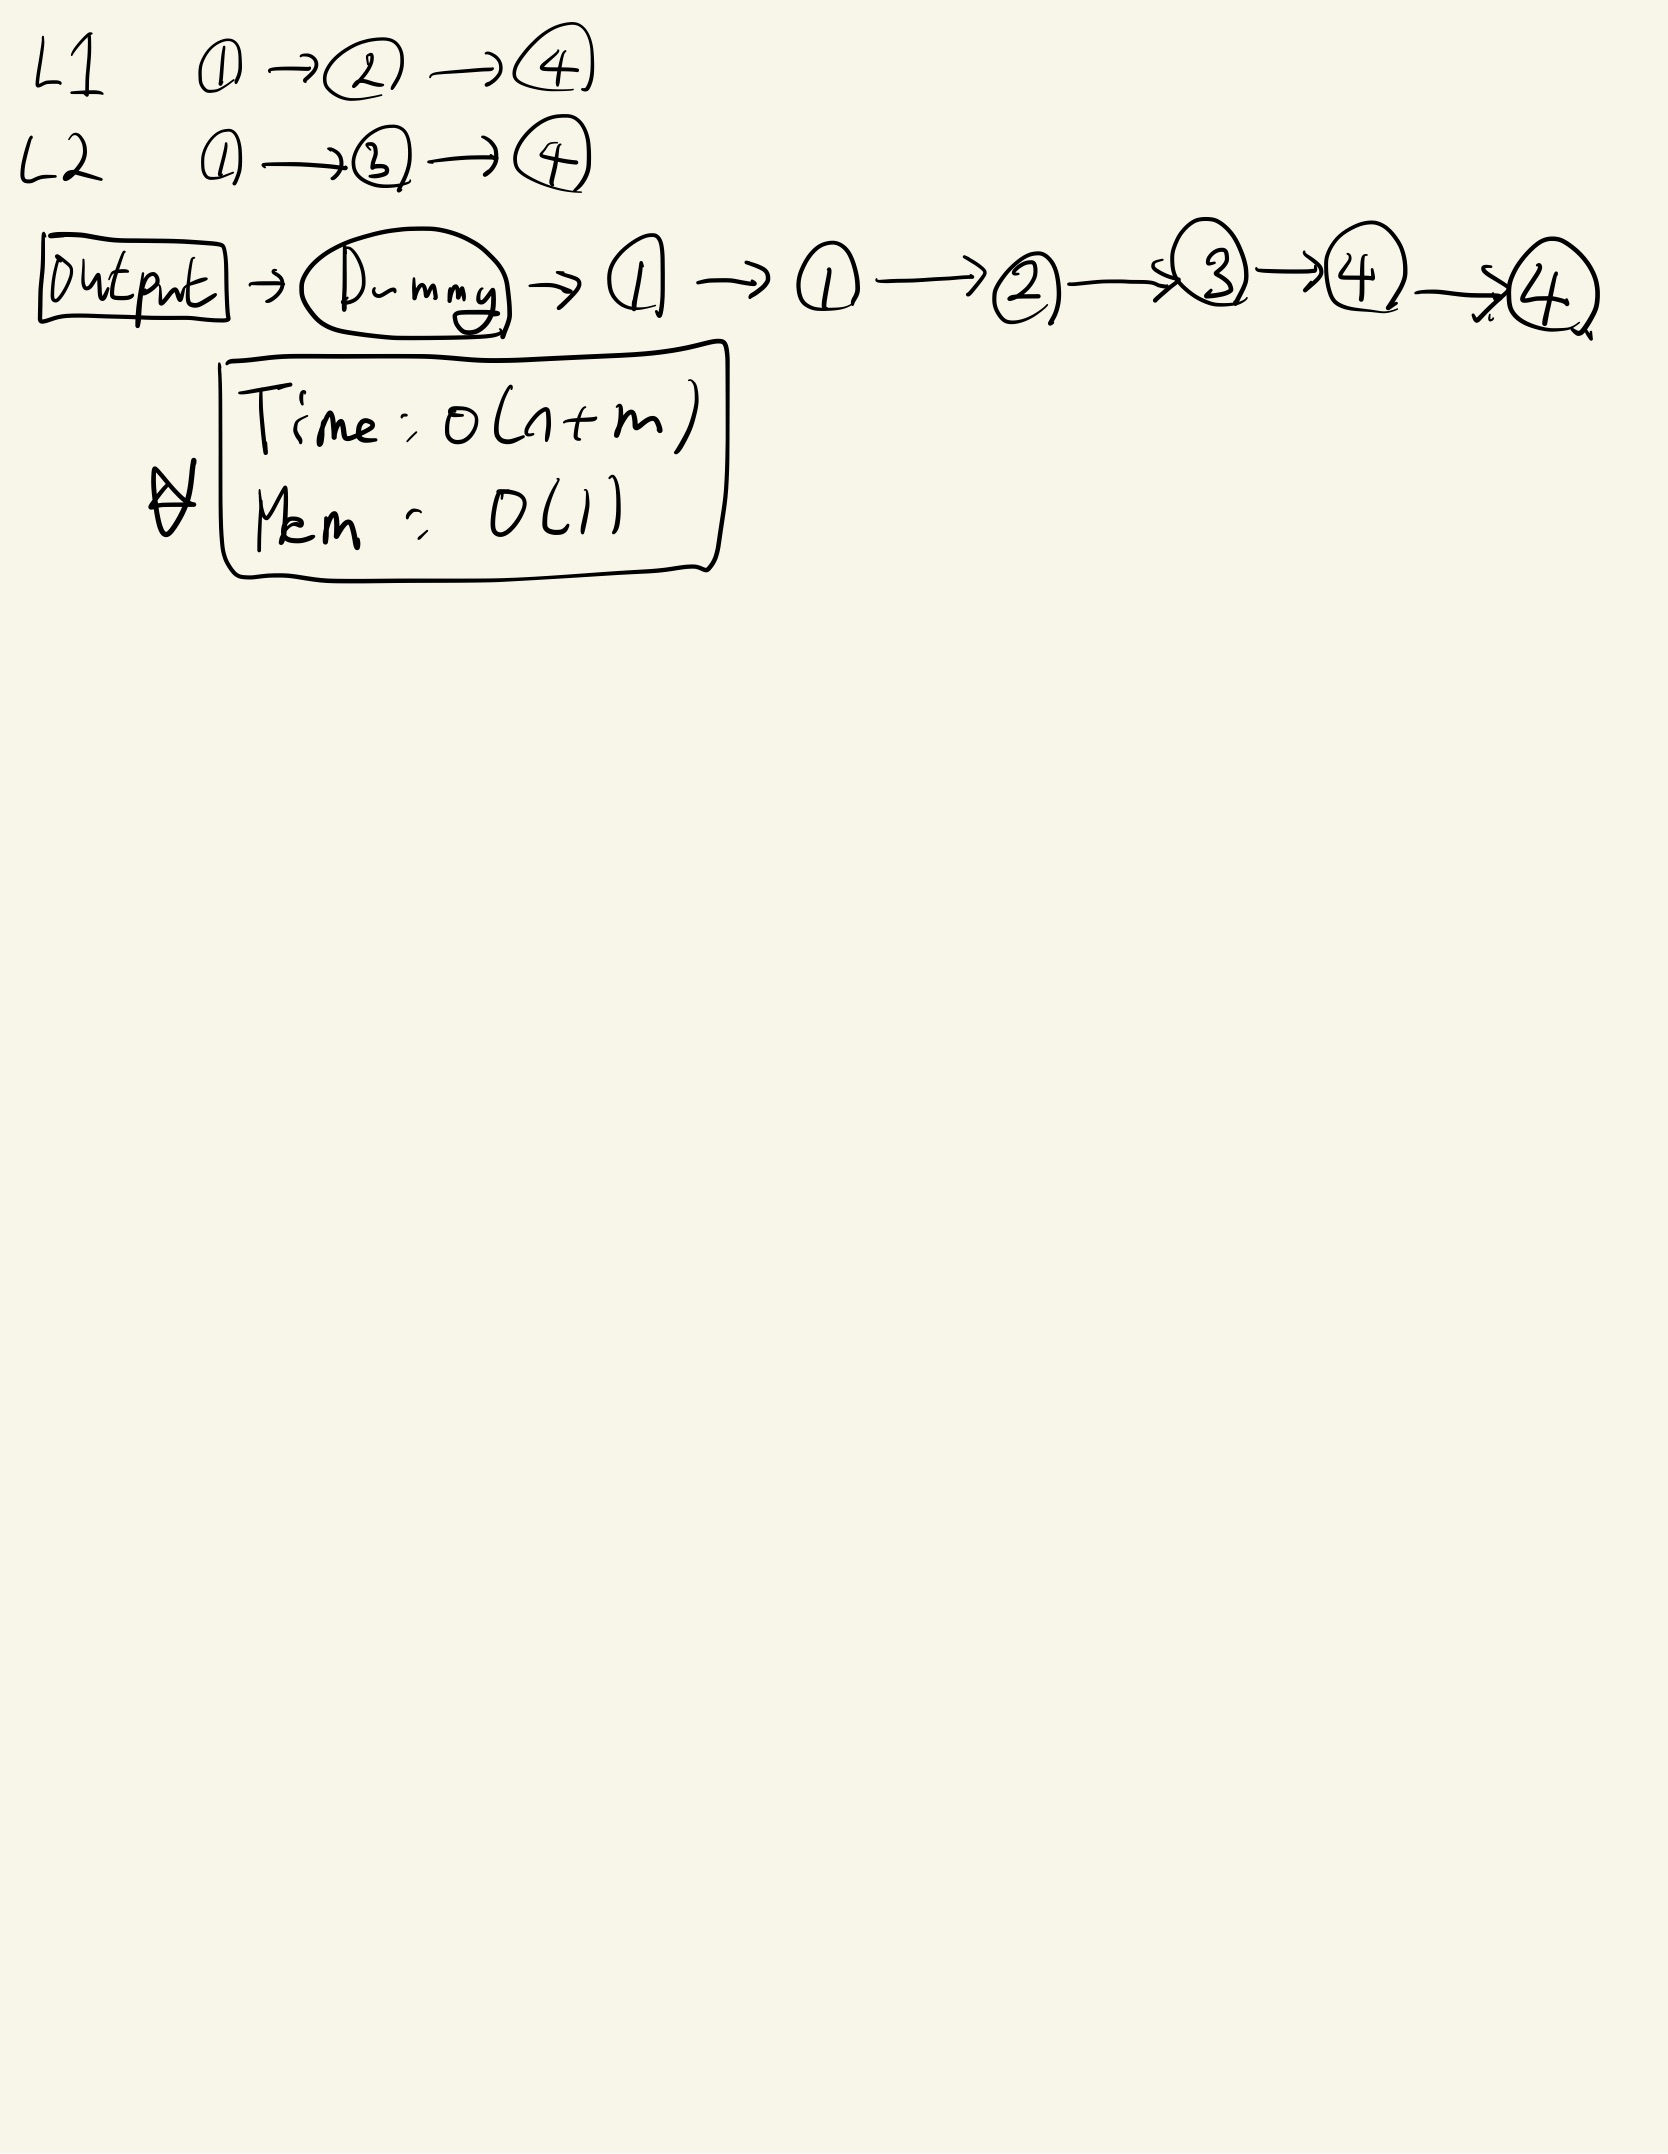 L1 1 → 2 → 4
L2 1 → 3 → 4
Output → Dummy → 1 → 1 → 2 → 3 → 4 → 4
Time: O(n+m)
Mem: O(1)